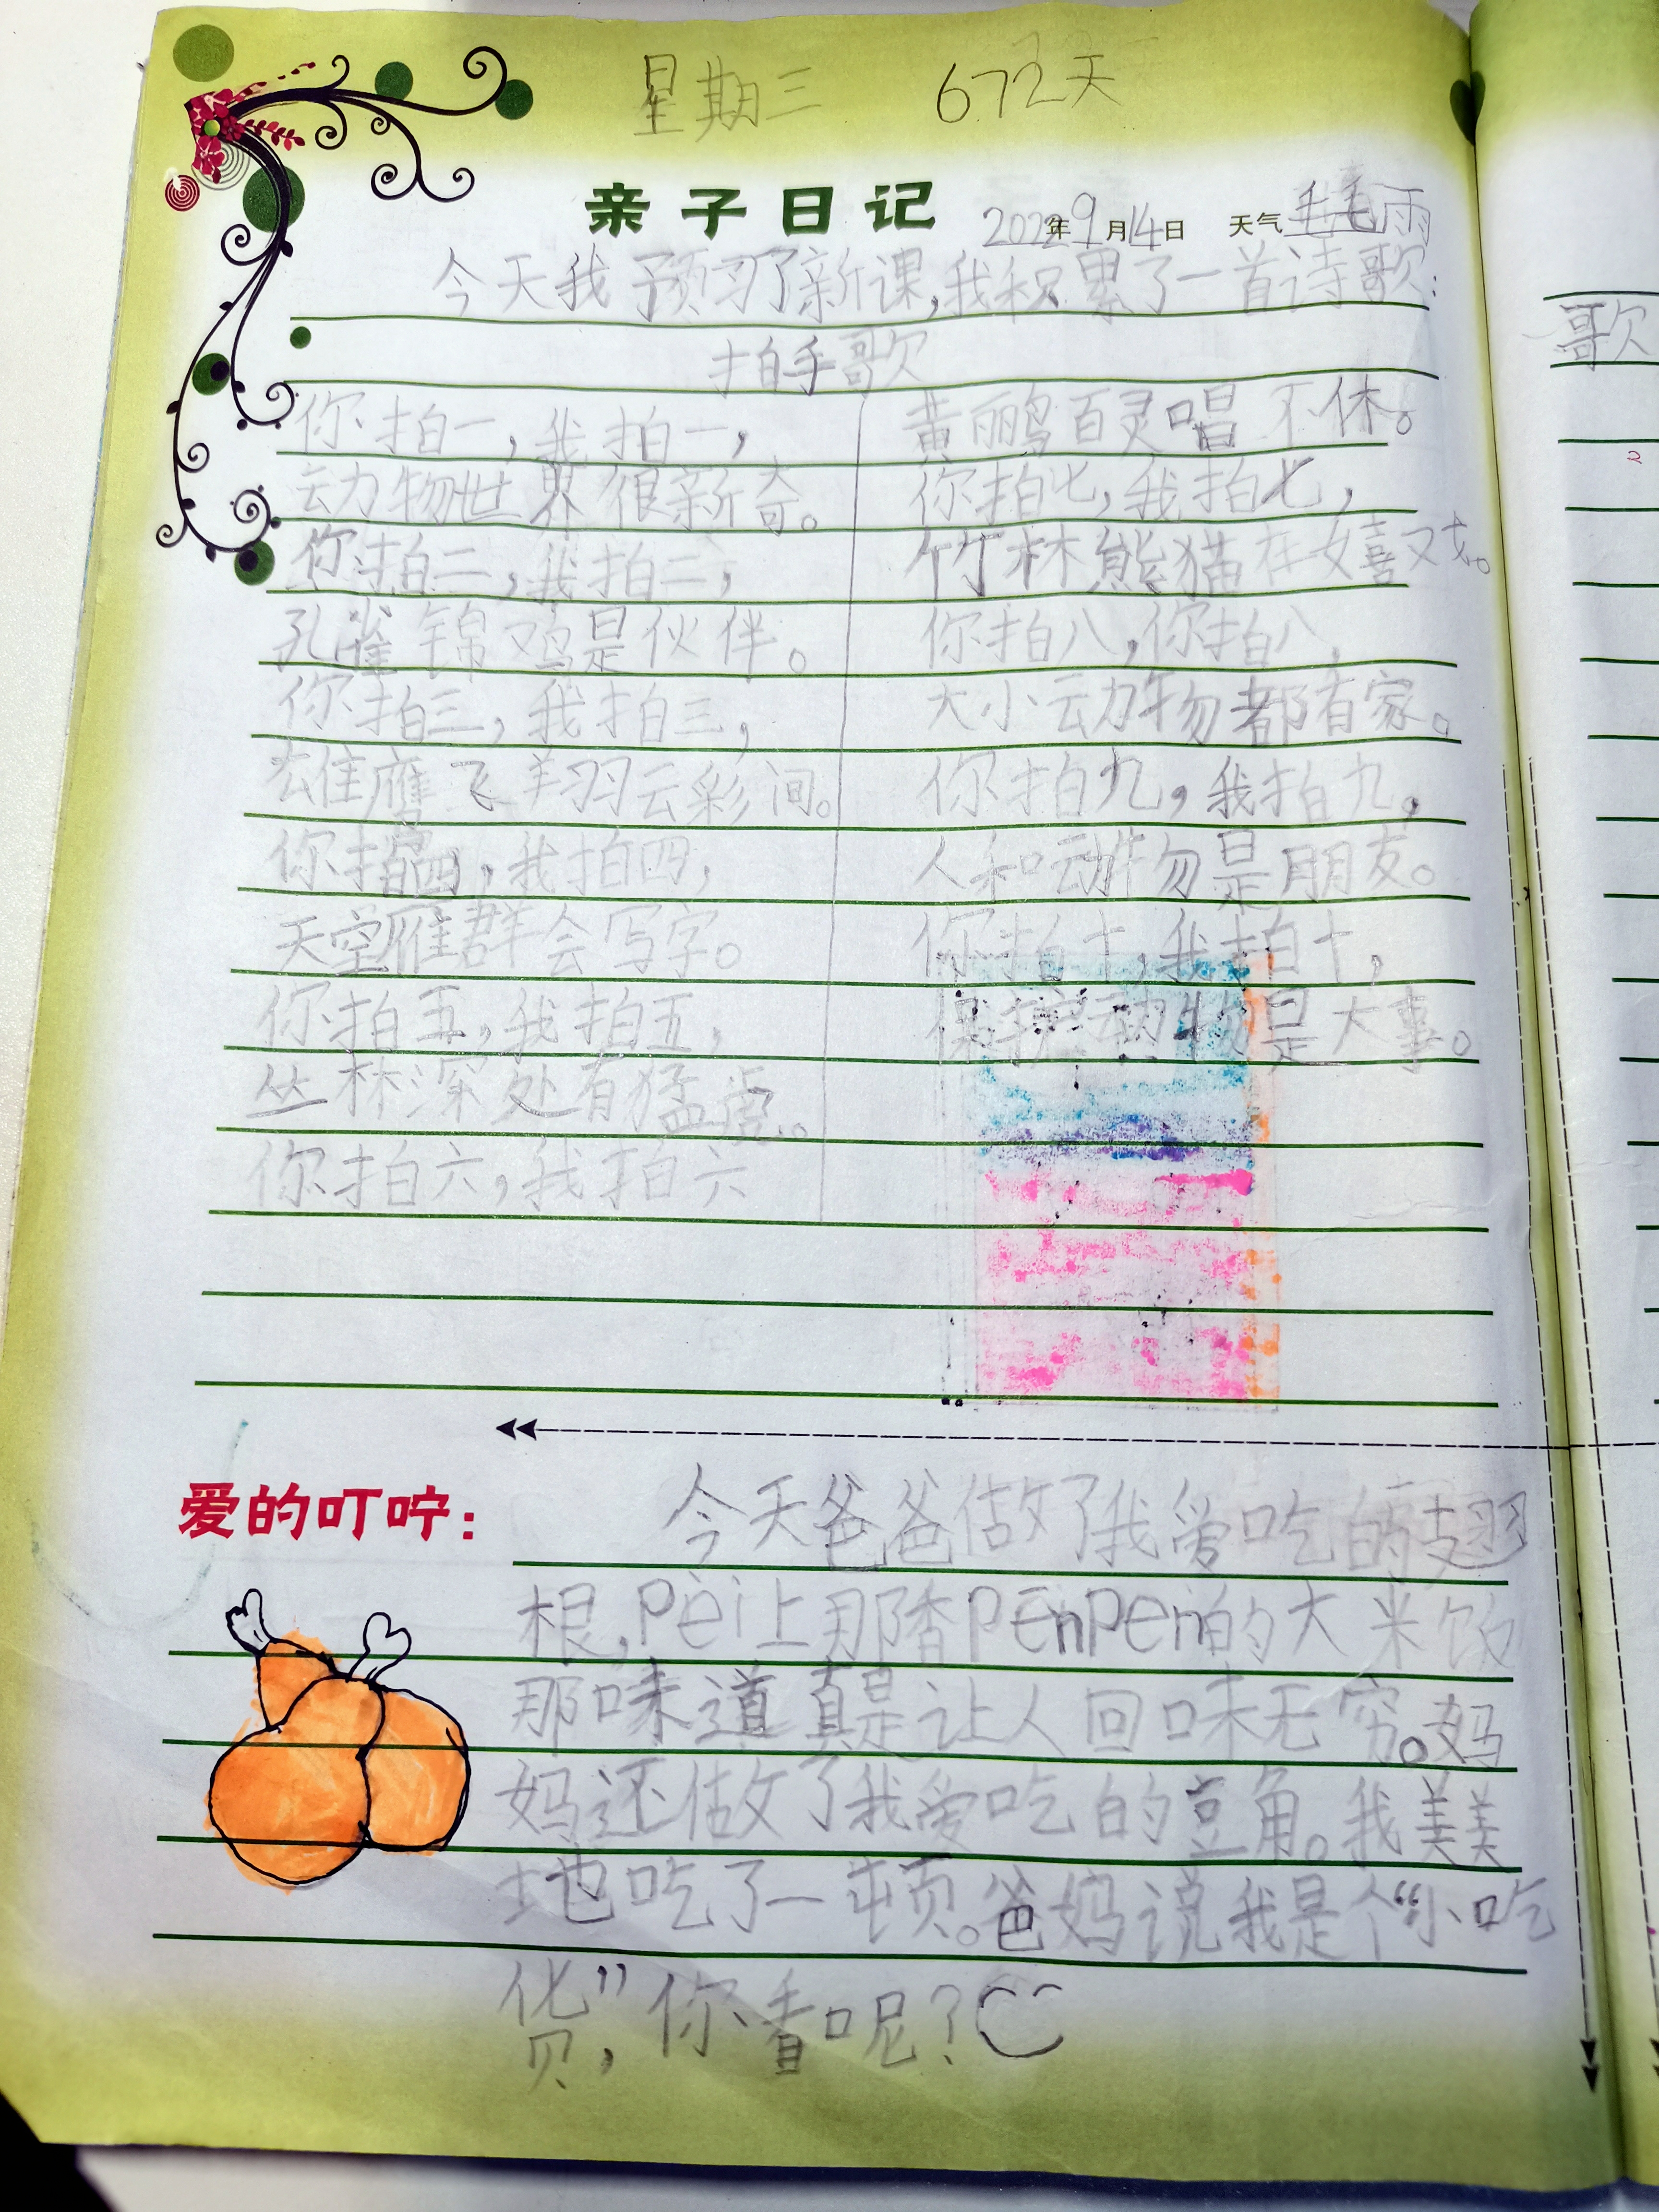 星期三 672天
亲子日记 2022年9月14日 天气毛毛雨
今天我预习了新课,我积累了一首诗歌:
拍手歌
你拍一,我拍一,
动物世界很新奇。
你拍二,我拍二,
孔雀锦鸡是伙伴。
你拍三,我拍三,
雄鹰飞翔云彩间。
你拍四,我拍四,
天空雁群会写字。
你拍五,我拍五,
丛林深处有猛虎。
你拍六,我拍六
黄鹂百灵唱不休。
你拍七,我拍七,
竹林熊猫在嬉戏。
你拍八,你拍八,
大小动物都有家。
你拍九,我拍九,
人和动物是朋友。
你拍十,我拍十,
保护动物是大事。
爱的叮咛:
今天爸爸做了我爱吃的翅
根,pèi上那香pēnpēn的大米饭
那味道真是让人回味无穷。妈
妈还做了我爱吃的豆角。我美美
地吃了一顿。爸妈说我是个“小吃
货”,你看呢?
歌